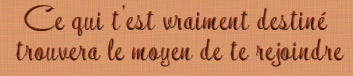 Ce qui t'est vraiment destiné
trouvera le moyen de te rejoindre